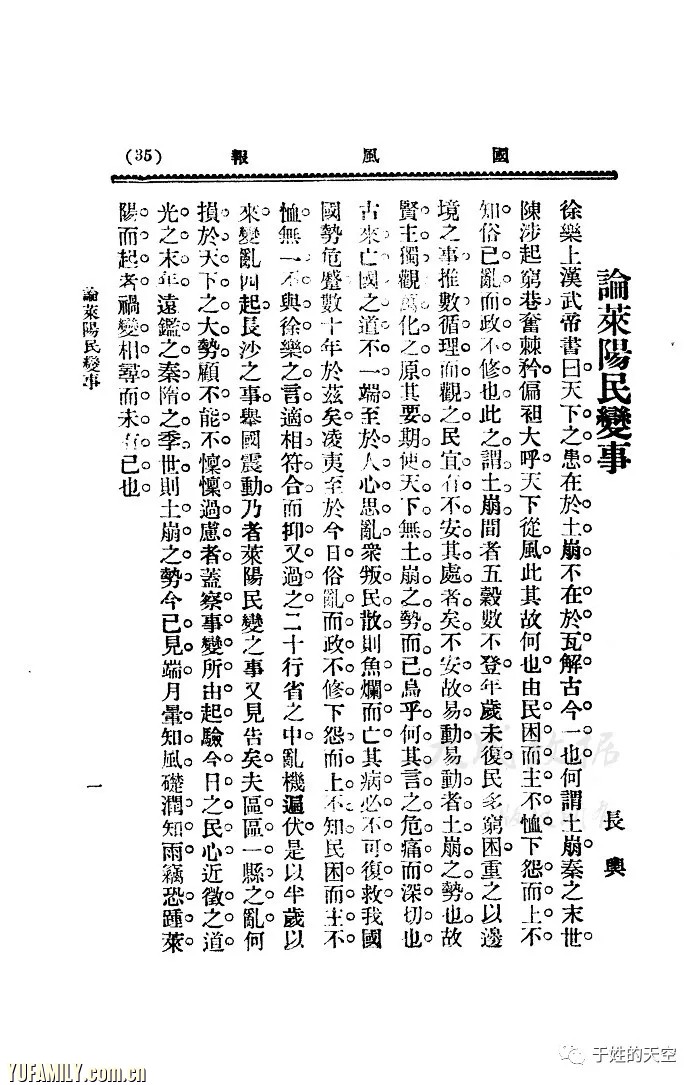 國風報 (35)
論萊陽民變事
長輿
徐樂上漢武帝書曰天下之患在於土崩不在於瓦解古今一也何謂土崩秦之末世
陳涉起窮巷奮棘矜偏袒大呼天下從風此其故何也由民困而主不恤下怨而上不
知俗已亂而政不修也此之謂土崩間者五穀數不登年歲未復民多窮困重之以邊
境之事推數循理而觀之民宜有不安其處者矣不安故易動易動者土崩之勢也故
賢主獨觀萬化之原其要期使天下無土崩之勢而已烏乎何其言之危痛而深切也
古來亡國之道不一端至於人心思亂衆叛民散則魚爛而亡其病必不可復救我國
國勢危蹙數十年於茲矣凌夷至於今日俗亂而政不修下怨而上不知民困而主不
恤無一不與徐樂之言適相符合而抑又過之二十行省之中亂機遍伏是以半歲以
來變亂四起長沙之事舉國震動乃者萊陽民變之事又見告矣夫區區一縣之亂何
損於天下之大勢顧不能不懍懍過慮者蓋察事變所由起驗今日之民心近徵之道
光之末年遠鑑之秦隋之季世則土崩之勢今已見端月暈知風礎潤知雨竊恐踵萊
陽而起者禍變相尋而未有已也
論萊陽民變事
一
YUFAMILY.com.cn
于姓的天空